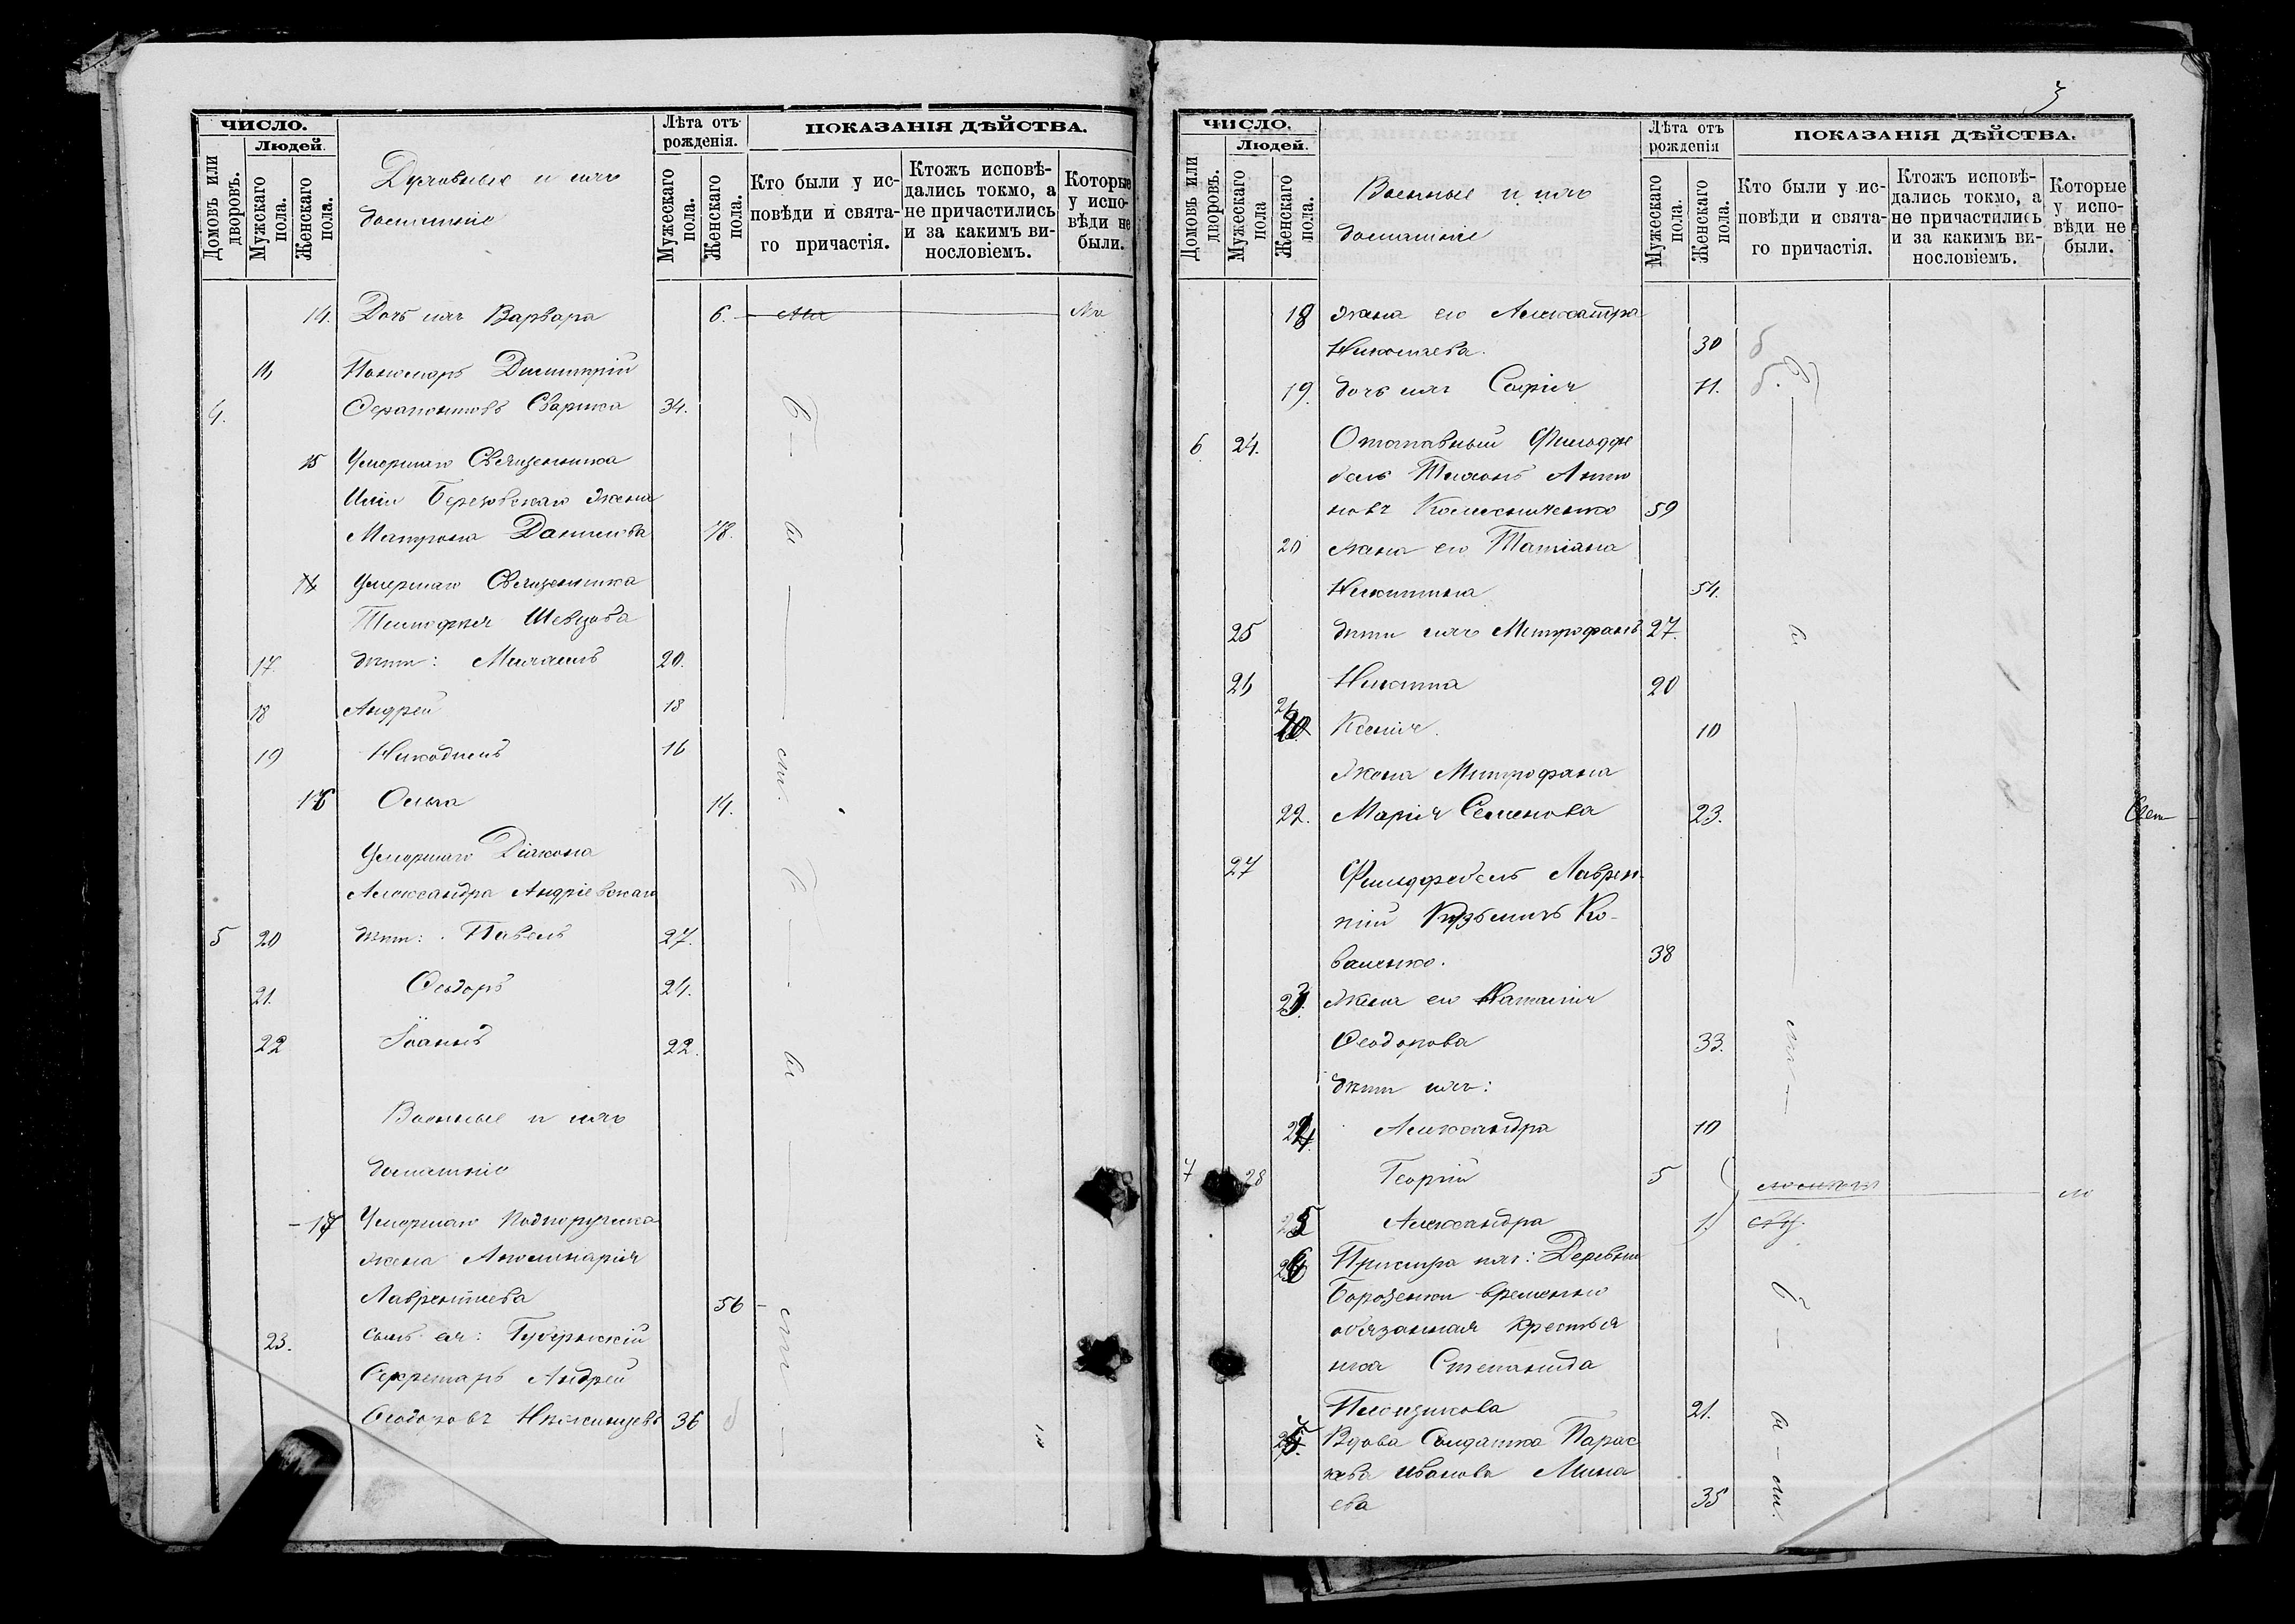 ЧИСЛО.
Людей.
Домовъ или дворовъ.
Мужскаго пола.
Женскаго пола.
Духовные и ихъ
домашніе
Лѣта отъ рожденія.
Мужескаго пола.
Женскаго пола.
ПОКАЗАНІЯ ДѢЙСТВА.
Кто были у ис-
повѣди и свята-
го причастія.
Ктожъ исповѣ-
дались токмо, а
не причастились
и за какимъ ви-
нословіемъ.
Которые
у испо-
вѣди не
были.
14. Дочь ихъ Варвара 6.
16 Пономарь Димитрій
4. Ѳерапонтовъ Сварика 34.
15 Умершаго Священника
Иліи Березовскаго жена
Матрона Данилова 78.
Умершаго Священника
Тимофея Шевцова
17. дѣти: Михаилъ 20.
18 Андрей 18
19 Никодимъ 16
16 Ольга 14.
Умершаго Діакона
Александра Андріевскаго
5 20 дѣти: Павелъ 27.
21. Ѳеодоръ 24.
22 Іоаннъ 22.
Военные и ихъ
домашніе
17 Умершаго Подпоручика
жена Аполинарія
Лаврентіева 56
23. сынъ ея: Губернскій
Секретарь Андрей
Ѳеодоровъ Нѣжинцевъ 36
3
ЧИСЛО.
Людей.
Домовъ или дворовъ.
Мужескаго пола
Женскаго пола.
Военные и ихъ
домашніе
Лѣта отъ рожденія
Мужескаго пола.
Женскаго пола.
ПОКАЗАНІЯ ДѢЙСТВА.
Кто были у ис-
повѣди и свята-
го причастія.
Ктожъ исповѣ-
дались токмо, а
не причастились
и за какимъ ви-
нословіемъ.
Которые
у испо-
вѣди не
были.
18 жена его Александра
Николаева. 30 б
19. дочь ихъ Софія 11. б.
6 24. Отставный Фильдфе
бель Тихонъ Анто
новъ Колесниченко 59
20 жена его Татіана
Никитина 54.
25 дѣти ихъ Митрофанъ 27.
26 Никита 20
21 Ксенія. 10
Жена Митрофана
22. Марія Семенова 23.
27 Фильдфебель Лаврен-
тій Кузьмичъ Ко-
валенко. 38
23. Жена его Наталія
Ѳеодорова 33.
дѣти ихъ:
24. Александра 10
7 28 Георгій 5
25 Александра 1.
26 Прислуга ихъ: Деревни
Борозенки временно
обязанная крестья
нка Степанида
21.
Вдова Солдатка Парас
кева Иванова Мина
ева 35